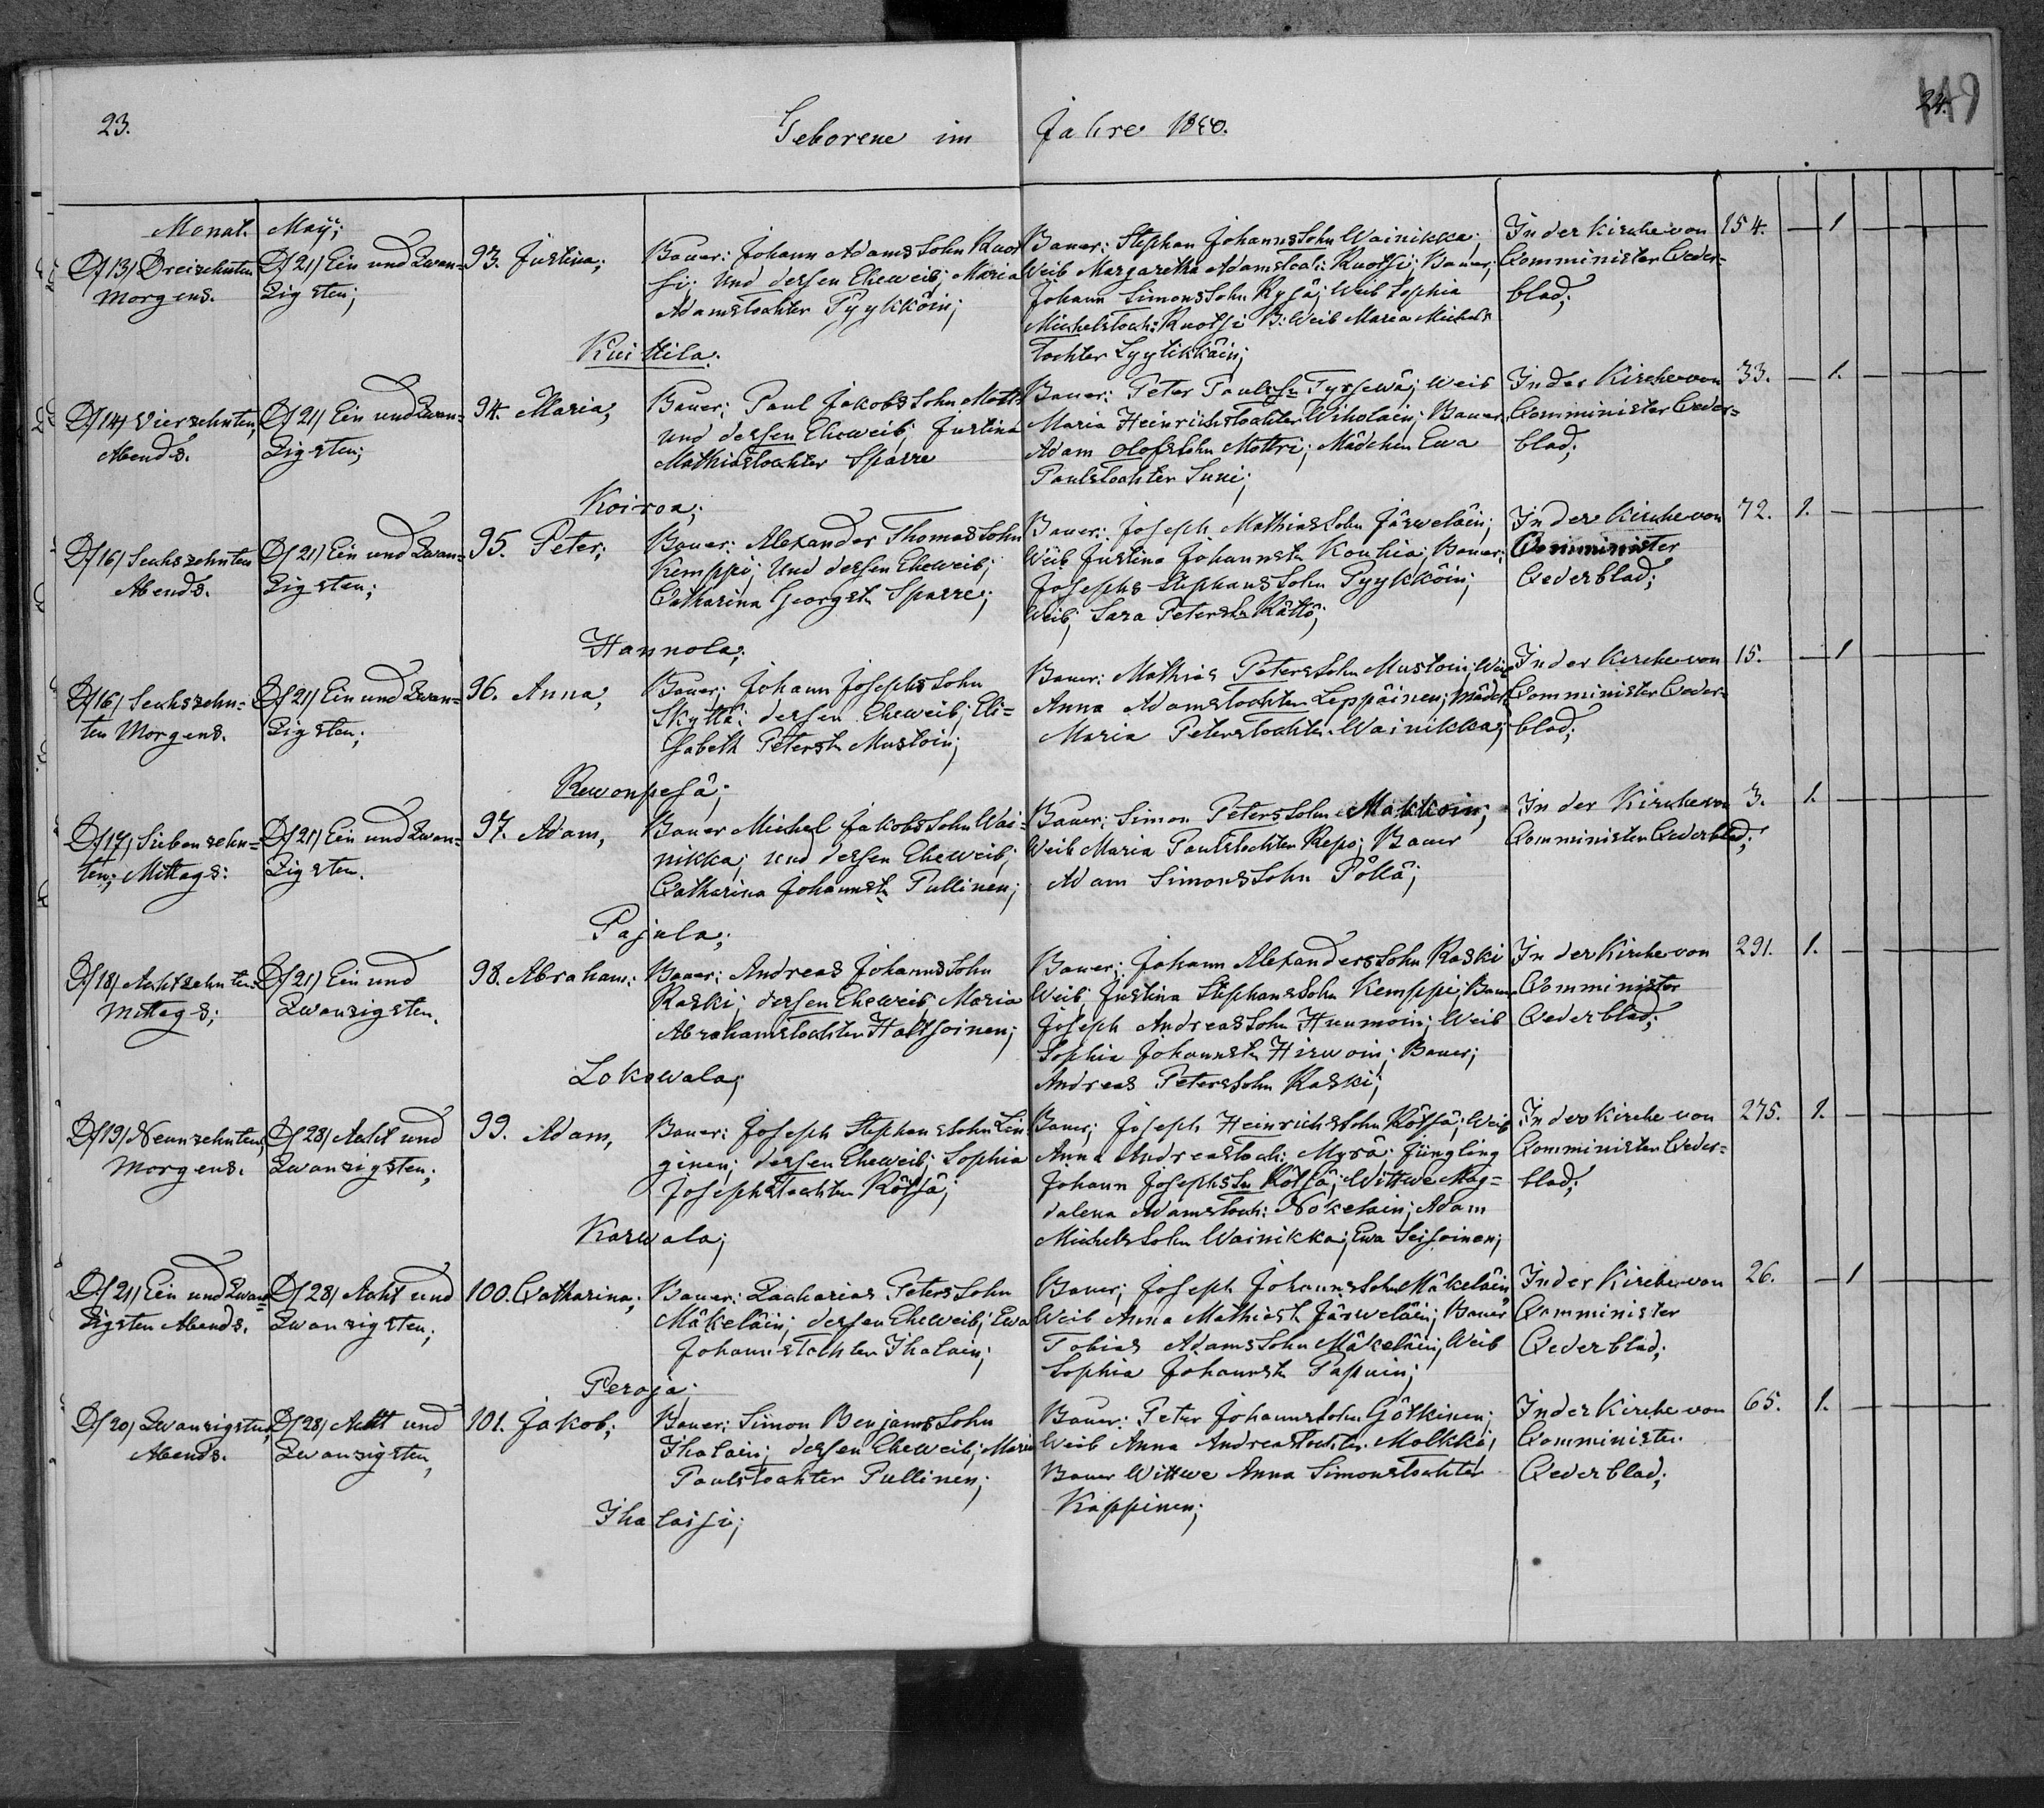 23.
24.
149
Geborene im Jahre 1840.
Monat. May;
D/13/ Dreizehnten
Morgens.
D/21/ Ein und Zwan-
zigsten;
93. Justina;
Bauer: Johann Adams Sohn Ruot
si; und dessen Eheweib; Maria
Adamstochter Pyykköin;
Kuittila.
Bauer: Stephan Johanns Sohn Wainikka;
Weib Margaretha Adamstoch: Ruotsi; Bauer;
Johann Simons Sohn Rysä; Weib Sophia
Michelstoch: Ruotsi B: Weib Maria Michels
tochter Lyytikkäin;
In der Kirche von
Comminister Ceder-
blad;
154. — 1
D/14/ Vierzehnten,
Abends.
D/21/ Ein und Zwan-
zigsten;
94. Maria,
Bauer: Paul Jakobs Sohn Mottri
und dessen Eheweib; Justina
Mathiastochter Sparre
Koiroa;
Bauer: Peter Pauls Sn Tyrsewä; Weib
Maria Heinrichstochter Wiholain; Bauer
Adam Olofs Sohn Mottri; Mädchen Ewa
Paulstochter Suni;
In der Kirche von
Comminister Ceder-
blad;
33. — 1.
D/16/ Sechszehnten
Abends.
D/21/ Ein und Zwan-
zigsten;
95. Peter;
Bauer: Alexander Thomas Sohn
Kemppi; und dessen Eheweib;
Catharina Georgst. Sparre;
Hannola;
Bauer: Joseph Mathias Sohn Järweläin;
Weib Justina Johannst. Kouhia; Bauer:
Josephs Stephans Sohn Pyykköin;
Weib; Sara Peterst. Rättö;
In der Kirche von
Comminister
Cederblad;
72. 1. —
D/16/ Sechszehn-
ten Morgens.
D/21/ Ein und Zwan-
zigsten;
96. Anna,
Bauer: Johann Josephs Sohn
Skyttä; dessen Eheweib; Eli-
sabeth Peterst. Mustoin;
Rewonpesä;
Bauer: Mathias Peters Sohn Mustoin; Weib
Anna Adamstochter Leppäinen; Mädch
Maria Peterstochter Wainikka;
In der Kirche von
Comminister Ceder-
blad;
15. — 1
D/17/ Siebenzehn-
ten; Mittags:
D/21/ Ein und Zwan-
zigsten.
97. Adam,
Bauer Michel Jakobs Sohn Wai-
nikka; und dessen Eheweib;
Catharina Johannst. Pullinen;
Pajula;
Bauer: Simon Peters Sohn Makkoin;
Weib Maria Paulstochter Repo; Bauer
Adam Simons Sohn Pöllä;
In der Kirche von
Comminister Cederblad;
3. 1. —
D/18/ Achtzehnten
Mittags;
D/21/ Ein und
Zwanzigsten.
98. Abraham:
Bauer: Andreas Johanns Sohn
Raski; dessen Eheweib; Maria
Abrahamstochter Haltsoinen;
Lokowala;
Bauer: Johann Alexanders Sohn Raski
Weib, Justina Stephans Sohn Kemppi; Bauer
Joseph Andreas Sohn Huumoin; Weib
Sophia Johannst. Hirwoin; Bauer;
Andreas Peters Sohn Raski;
In der Kirche von
Comminister
Cederblad;
291. 1. —
D/19/ Neunzehnten,
Morgens.
D/28/ Acht und
Zwanzigsten;
99. Adam,
Bauer: Joseph Stephans Sohn Lin-
ginen; dessen Eheweib; Sophia
Josephstochter Rötsä;
Karwala;
Bauer; Joseph Heinrichs Sohn Rötsä; Weib
Anna Andreastoch: Myrä; Jüngling
Johann Josephs Sn Rötsä; Wittwe Mag-
dalena Adamstoch: Nokelain; Adam
Michels Sohn Wainikka; Ewa Seisoinen;
In der Kirche von
Comminister Ceder-
blad;
275. 1. —
D/21/ Ein und Zwan-
zigsten Abends.
D/28/ Acht und
Zwanzigsten;
100. Catharina;
Bauer: Zacharias Peters Sohn
Mäkeläin; dessen Eheweib; Ewa
Johannstochter Ihalain;
Peroja;
Bauer; Joseph Johanns Sohn Mäkeläin
Weib Anna Mathiast. Järweläin; Bauer
Tobias Adams Sohn Mäkeläin; Weib
Sophia Johannst. Papuin;
In der Kirche von
Comminister
Cederblad;
26. — 1
D/20/ Zwanzigsten,
Abends.
D/28/ Acht und
Zwanzigsten,
101. Jakob;
Bauer: Simon Benjams Sohn
Ihalain; dessen Eheweib; Maria
Paulstochter Pullinen;
Ihalaisi;
Bauer: Peter Johanns Sohn Götkinen;
Weib Anna Andreastochter Molkki;
Bauer Wittwe Anna Simonstochter
Käppinen;
In der Kirche von
Comminister.
Cederblad;
65. 1. —